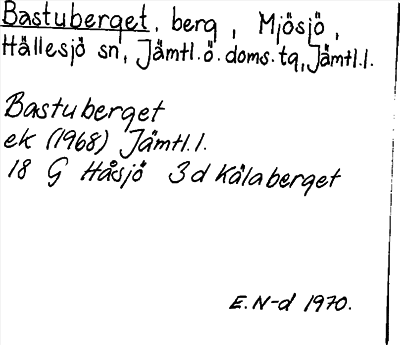 Bastuberget, berg, Mjösjö,
Hällesjö sn, Jämtl.ö. doms.tg, Jämtl.l.
Bastuberget
ek (1968) Jämtl.l.
18 G Håsjö 3d Kälaberget
E.N-d 1970.